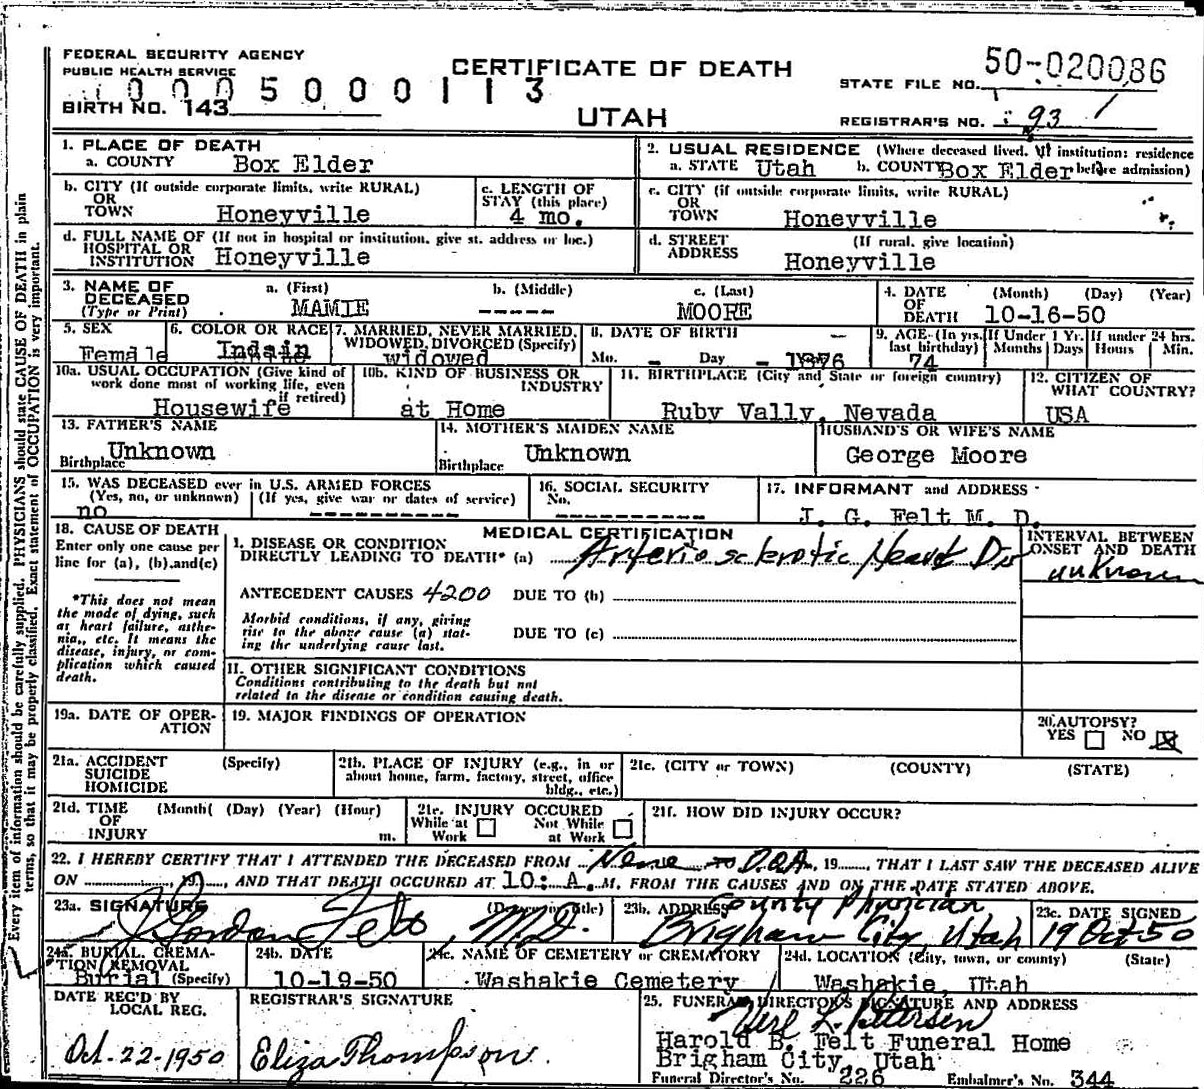 FEDERAL SECURITY AGENCY
PUBLIC HEALTH SERVICE
0005000113
BIRTH NO. 143
CERTIFICATE OF DEATH
UTAH
STATE FILE NO. 50-020086
REGISTRAR'S NO. 93
1. PLACE OF DEATH
a. COUNTY Box Elder
2. USUAL RESIDENCE (Where deceased lived. If institution: residence before admission)
a. STATE Utah b. COUNTY Box Elder
b. CITY (If outside corporate limits, write RURAL)
OR
TOWN Honeyville
c. LENGTH OF
STAY (this place)
4 mo.
c. CITY (if outside corporate limits, write RURAL)
OR
TOWN Honeyville
d. FULL NAME OF (If not in hospital or institution, give st. address or loc.)
HOSPITAL OR
INSTITUTION Honeyville
d. STREET (If rural, give location)
ADDRESS Honeyville
3. NAME OF
DECEASED
(Type or Print)
a. (First) b. (Middle) c. (Last)
MAMIE ----- MOORE
4. DATE (Month) (Day) (Year)
OF
DEATH 10-16-50
5. SEX
Female
6. COLOR OR RACE
Indain
7. MARRIED, NEVER MARRIED,
WIDOWED, DIVORCED (Specify)
widowed
8. DATE OF BIRTH
Mo. - Day - 1876
9. AGE-(In yrs.
last birthday)
74
If Under 1 Yr.
Months Days
If under 24 hrs.
Hours Min.
10a. USUAL OCCUPATION (Give kind of
work done most of working life, even
if retired)
Housewife
10b. KIND OF BUSINESS OR
INDUSTRY
at Home
11. BIRTHPLACE (City and State or foreign country)
Ruby Vally, Nevada
12. CITIZEN OF
WHAT COUNTRY?
USA
13. FATHER'S NAME
Unknown
Birthplace
14. MOTHER'S MAIDEN NAME
Unknown
Birthplace
HUSBAND'S OR WIFE'S NAME
George Moore
15. WAS DECEASED ever in U.S. ARMED FORCES
(Yes, no, or unknown) (If yes, give war or dates of service)
no ----------
16. SOCIAL SECURITY
No. ----------
17. INFORMANT and ADDRESS
J. G. Felt M. D.
18. CAUSE OF DEATH
Enter only one cause per
line for (a), (b), and (c)
*This does not mean
the mode of dying, such
as heart failure, asthe-
nia,, etc. It means the
disease, injury, or com-
plication which caused
death.
MEDICAL CERTIFICATION
1. DISEASE OR CONDITION
DIRECTLY LEADING TO DEATH* (a) Arterio sclerotic Heart Dis
INTERVAL BETWEEN
ONSET AND DEATH
unknown
ANTECEDENT CAUSES 4200 DUE TO (b)
Morbid conditions, if any, giving
rise to the above cause (a) stat-
ing the underlying cause last.
DUE TO (c)
II. OTHER SIGNIFICANT CONDITIONS
Conditions contributing to the death but not
related to the disease or condition causing death.
19a. DATE OF OPER-
ATION
19. MAJOR FINDINGS OF OPERATION
20. AUTOPSY?
YES NO
21a. ACCIDENT (Specify)
SUICIDE
HOMICIDE
21b. PLACE OF INJURY (e.g., in or
about home, farm, factory, street, office
bldg., etc.)
21c. (CITY or TOWN) (COUNTY) (STATE)
21d. TIME (Month( (Day) (Year) (Hour)
OF
INJURY m.
21e. INJURY OCCURED
While at Work Not While at Work
21f. HOW DID INJURY OCCUR?
22. I HEREBY CERTIFY THAT I ATTENDED THE DECEASED FROM None to DOA, 19...., THAT I LAST SAW THE DECEASED ALIVE
ON ........, 19...., AND THAT DEATH OCCURED AT 10: A. M. FROM THE CAUSES AND ON THE DATE STATED ABOVE.
23a. SIGNATURE (Degree or title)
J Gordon Felt, M.D.
23b. ADDRESS County Physician
Brigham City, Utah
23c. DATE SIGNED
19 Oct 50
24a. BURIAL, CREMA-
TION, REMOVAL
Burial (Specify)
24b. DATE
10-19-50
24c. NAME OF CEMETERY or CREMATORY
Washakie Cemetery
24d. LOCATION (City, town, or county) (State)
Washakie, Utah
DATE REC'D BY
LOCAL REG.
Oct. 22-1950
REGISTRAR'S SIGNATURE
Eliza Thompson.
25. FUNERAL DIRECTOR'S SIGNATURE AND ADDRESS
Harold B. Felt Funeral Home
Brigham City, Utah
Funeral Director's No. 226 Embalmer's No. 344
Every item of information should be carefully supplied. PHYSICIANS should state CAUSE OF DEATH in plain
terms, so that it may be properly classified. Exact statement of OCCUPATION is very important.